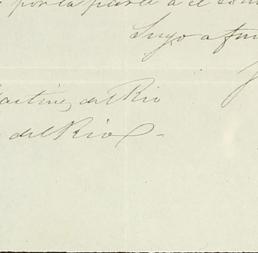 por la parte a el
Suyo afmo
Martinez del Rio
del Rio